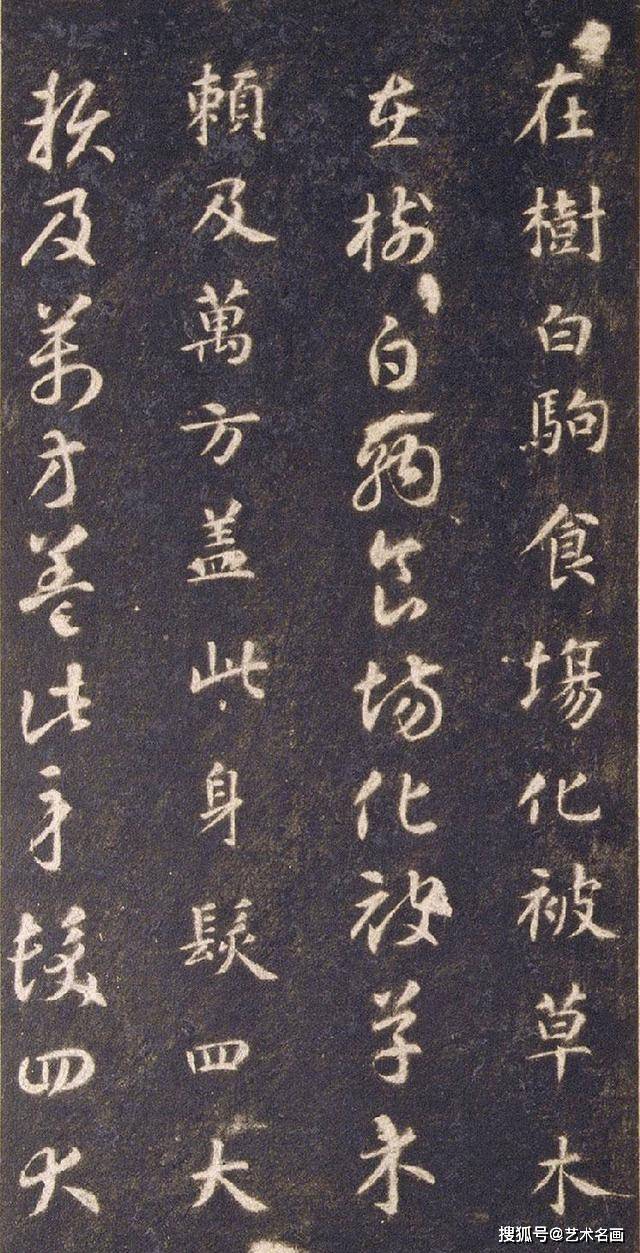 在樹白駒食場化被草木
在樹白駒食場化被草木
賴及萬方盖此身髮四大
賴及萬方盖此身髮四大
搜狐号@艺术名画